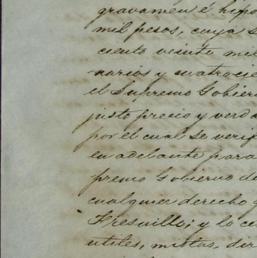 gravamen é hipo
mil pesos, cuya s
ciento veinte mil
narios y cuatrocie
el Supremo Gobier
justo precio y verda
por el cual se verif
en adelante para
premo Gobierno de
cualquier derecho q
Fresnillo; y lo ce
utiles, mistas, dir